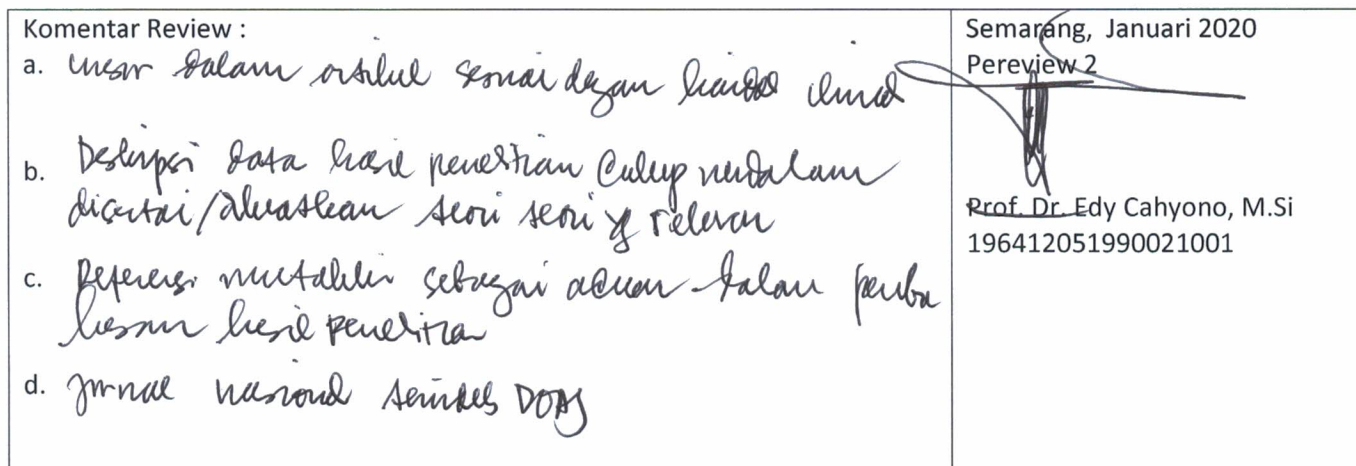 Komentar Review :
a. unsur dalam artikel sesuai dengan kaidah ilmiah
b. Deskripsi data hasil penelitian Cukup mendalam
disertai / dikuatkan teori teori yg relevan
c. Referensi mutakhir sebagai acuan dalam pemba
hasan hasil penelitian
d. Jurnal nasional terindeks DOAJ
Semarang, Januari 2020
Pereview 2
Prof. Dr. Edy Cahyono, M.Si
196412051990021001